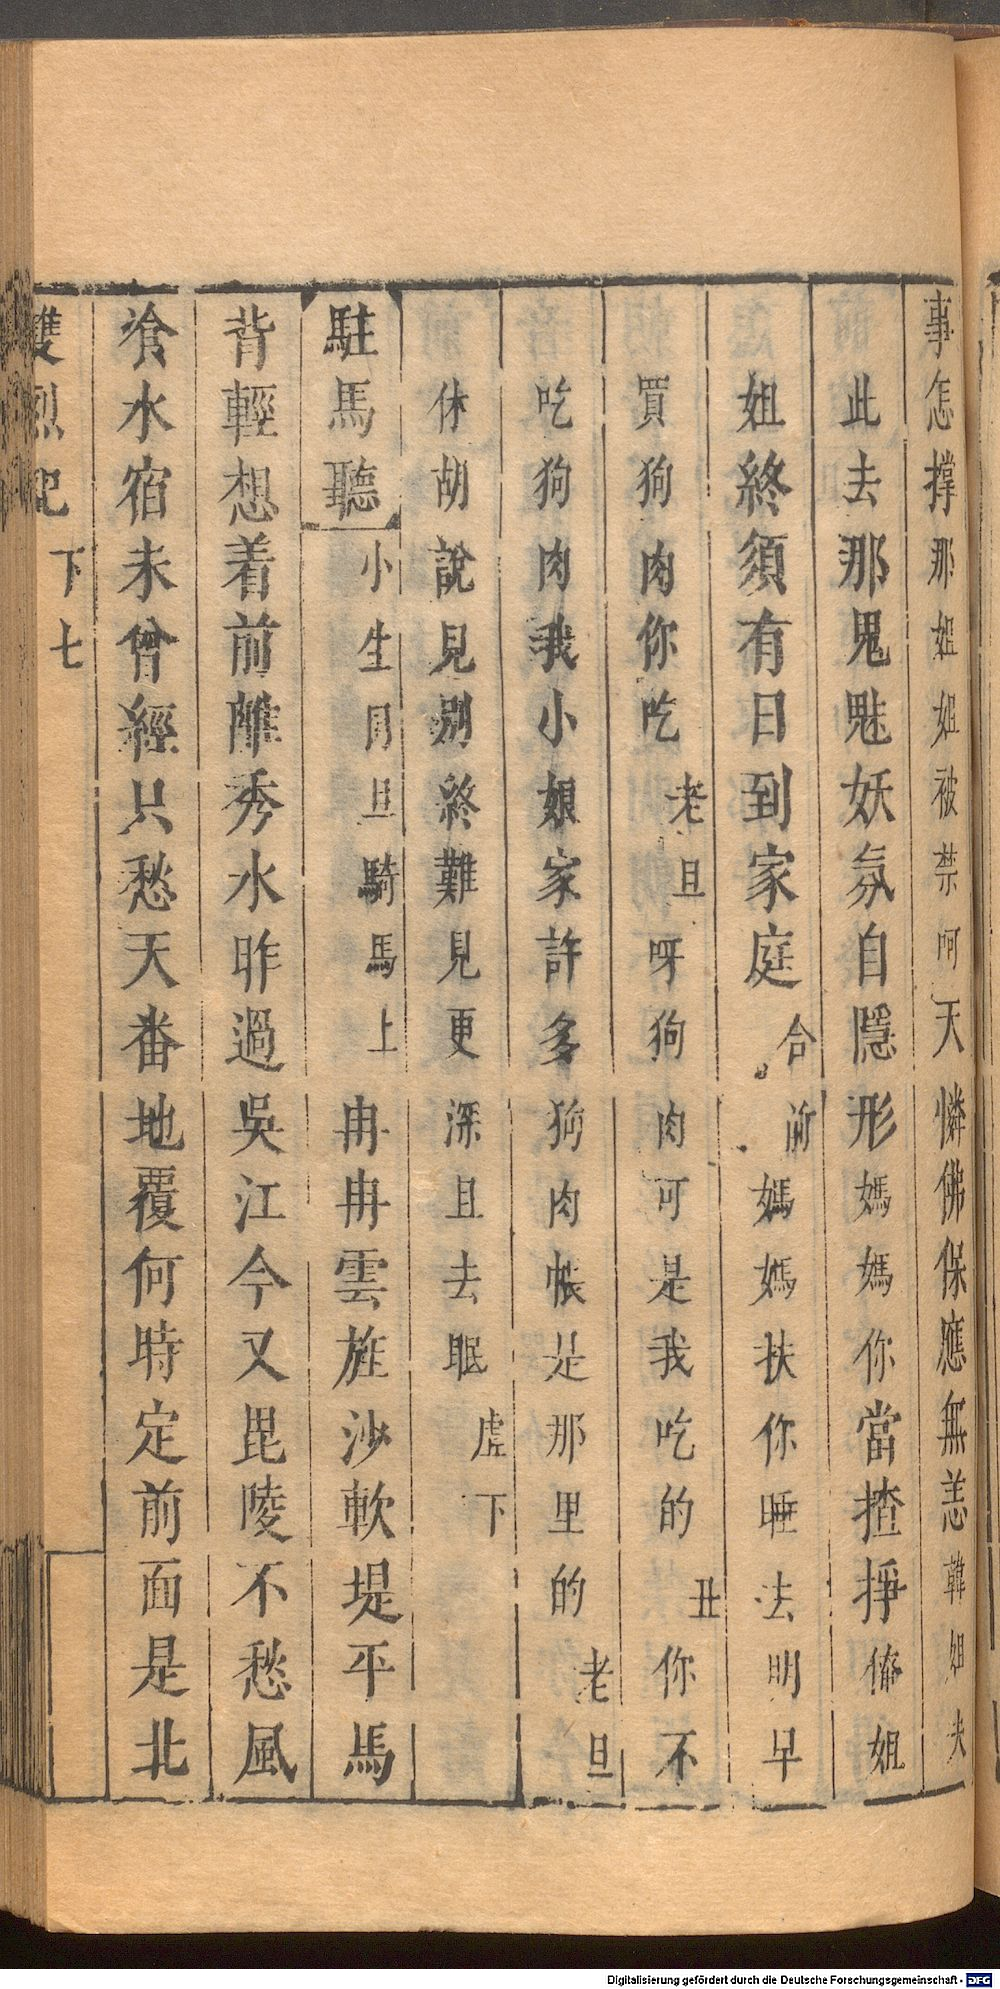 事怎撐那姐姐被禁呵天憐佛保應無恙韓姐夫
此去那鬼魅妖氛自隱形媽媽你當揸掙俺姐
姐終須有日到家庭合前媽媽扶你睡法明早
買狗肉你吃老旦呀狗肉可是我吃的丑你不
吃狗肉我小娘家許多狗肉帳是那里的老旦
休胡說見別終難見更深且去眠虛下
駐馬聽小生同旦騎馬上冉冉雲旌沙軟堤平馬
背輕想着前離秀水昨過吳江今又毘陵不愁風
飡水宿未曾經只愁天番地覆何時定前面是北
雙烈記 下 七
Digitalisierung gefördert durch die Deutsche Forschungsgemeinschaft - DFG